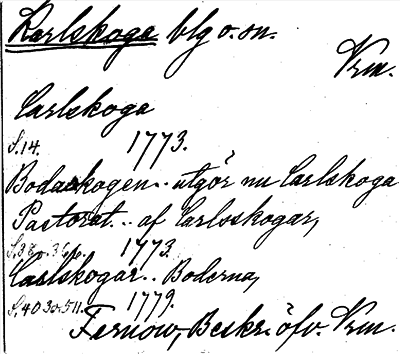 Karlskoga blg o. sn.
Vrm.
Carlskoga
S. 14. 1773.
Bodaskogen.. utgör nu Carlskoga
Pastorat.. af Carlsskogar,
1773.
Carlskogar.. Boderna,
S. 403 o. 511. 1779.
Fernow, Beskr. öfv. Vrm.